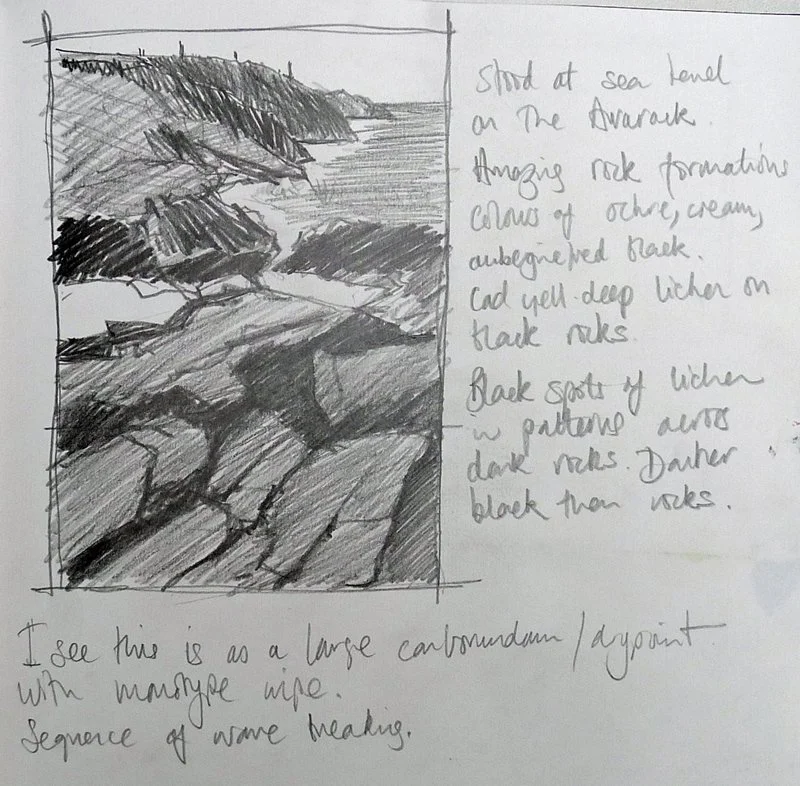 Stood at sea level
on the Avarack.
Amazing rock formations
colours of ochre, cream,
aubegine/red black.
Cad yell deep lichen on
black rocks.
Black spots of lichen
in patterns across
dark rocks. Darker
black then rocks.
I see this is as a large carborundum/drypoint
with monotype wipe.
Sequence of wave breaking.